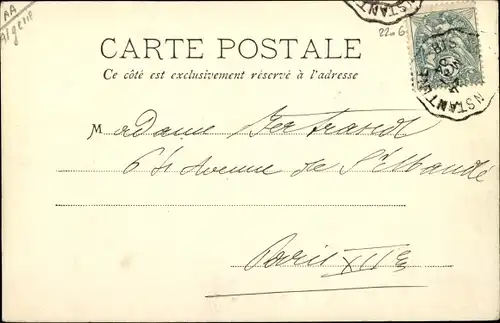 AA
Algérie
CARTE POSTALE
Ce côté est exclusivement réservé à l'adresse
22.6
Madame Bertrand
64 Avenue de St Mandé
Paris XIIE